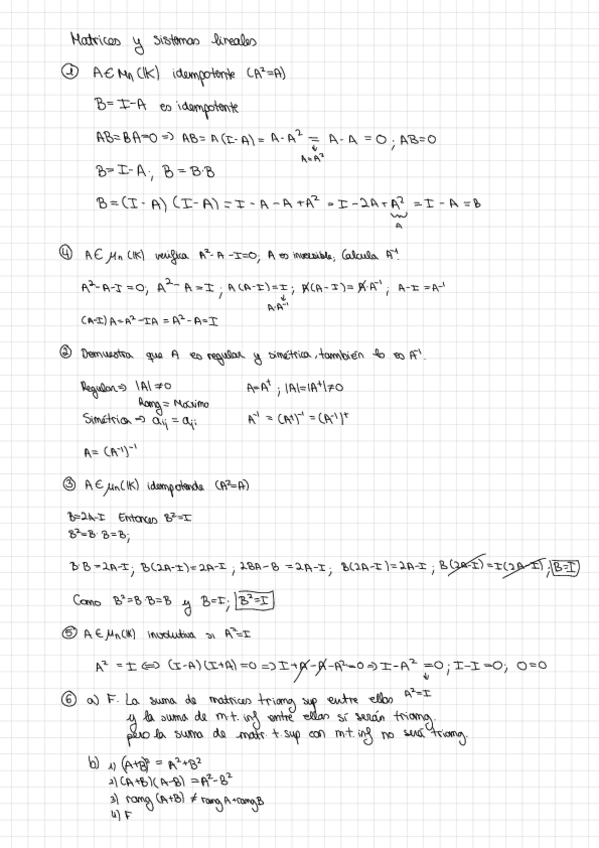 Matrices y sistemas lineales
① A ∈ Mn(IK) idempotente (A²=A)
B = I-A es idempotente
AB=BA=0 => AB = A(I-A) = A-A² = A-A = 0 ; AB=0
A=A²
B=I-A ; B = B·B
B=(I-A)(I-A) = I-A-A+A² = I-2A+A² = I-A = B
A
④ A ∈ Mn(IK) verifica A²-A-I=0; A es inversible, Calcula A⁻¹.
A²-A-I=0; A²-A=I ; A(A-I)=I ; A(A-I)=A·A⁻¹ ; A-I=A⁻¹
A·A⁻¹
(A-I)A=A²-IA=A²-A=I
② Demuestra que A es regular y simétrica, también lo es A⁻¹.
Regular => |A|≠0 A=Aᵗ ; |A|=|Aᵗ|≠0
Rang = Máximo
Simétrica → aij = aji A⁻¹ = (Aᵗ)⁻¹ = (A⁻¹)ᵗ
A = (A⁻¹)⁻¹
③ A ∈ Mn(IK) idempotente (A²=A)
B=2A-I Entonces B²=I
B²=B·B=B;
B·B=2A-I; B(2A-I)=2A-I ; 2BA-B=2A-I; B(2A-I)=2A-I ; B(2A-I)=I(2A-I) ; B=I
Como B²=B·B=B y B=I; B²=I
⑤ A ∈ Mn(IK) involutiva si A²=I
A² = I <=> (I-A)(I+A)=0 => I+A-A-A²=0 => I-A²=0; I-I=0; 0=0
A²=I
⑥ a) F. La suma de matrices triang sup entre ellas
y la suma de m.t. inf entre ellas sí serán triang.
pero la suma de matr. t. sup con m.t. inf no será triang.
b) 1) (A+B)² = A²+B²
2) (A+B)(A-B) = A²-B²
3) rang (A+B) ≠ rang A + rang B
4) F